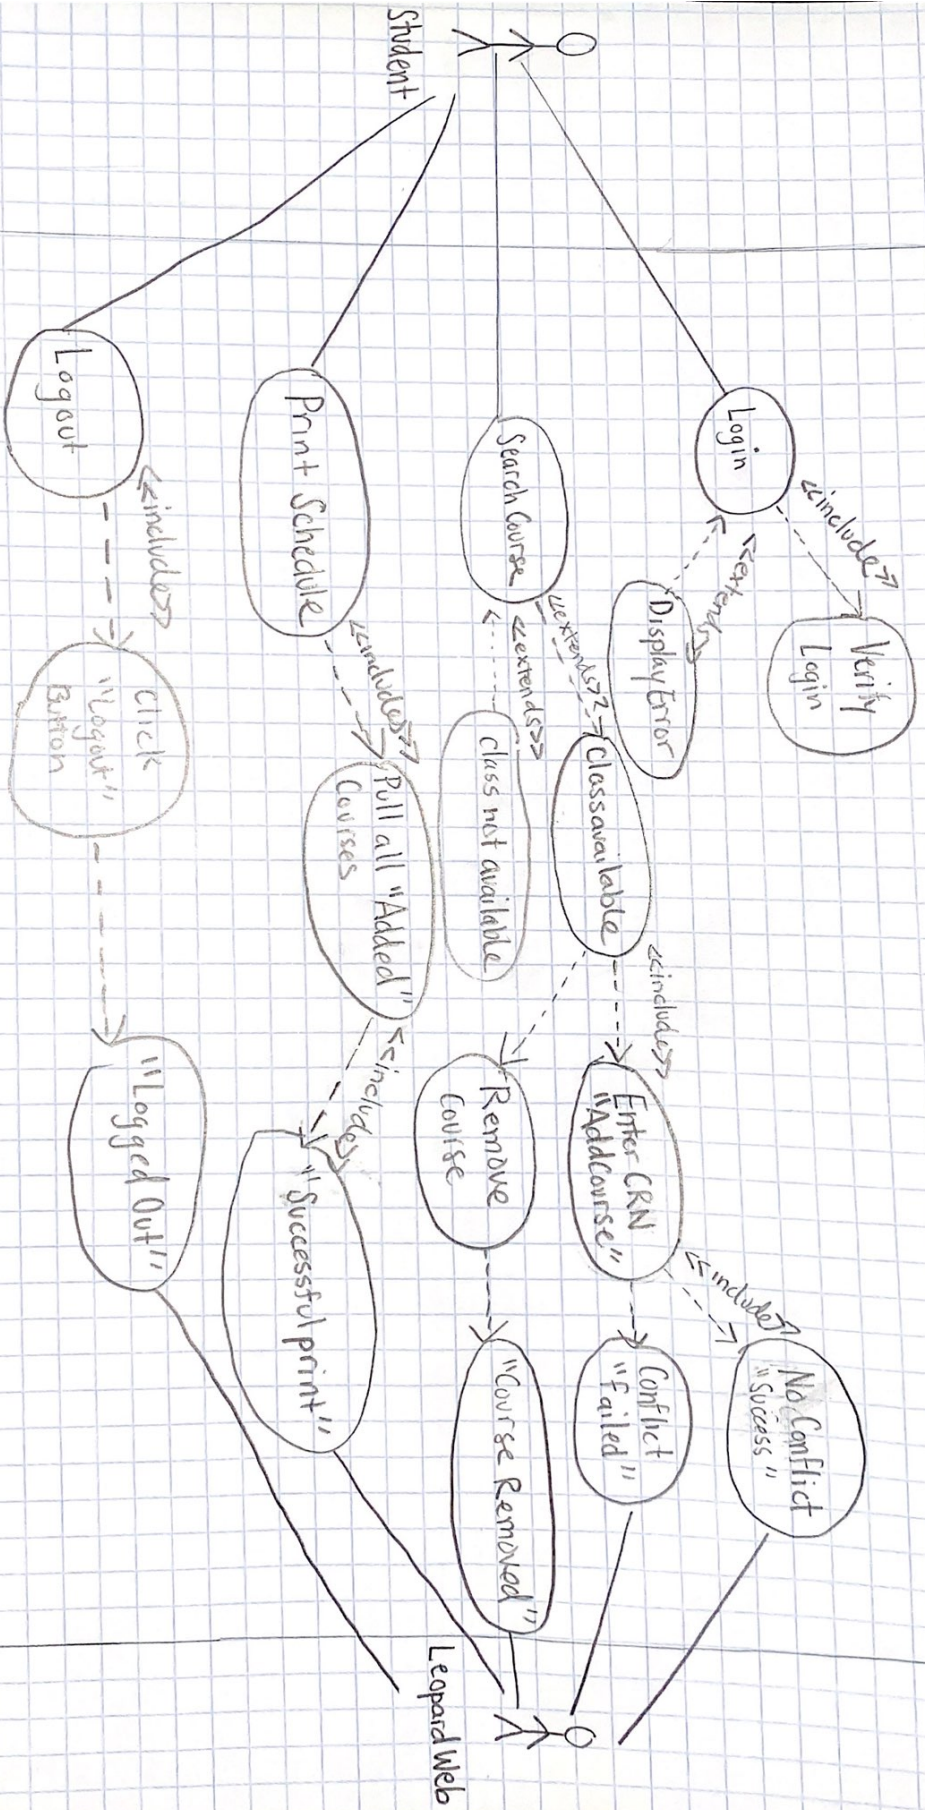 Student
Login
<<include>>
Verify
Login
<<extend>>
Display Error
Search Course
<<extends>>
Class available
<<extends>>
class not available
<<include>>
Enter CRN
"Add Course"
<<include>>
No Conflict
"Success"
Conflict
"failed"
Remove
Course
"Course Removed"
Print Schedule
<<include>>
Pull all "Added"
Courses
<<include>>
"Successful print"
Logout
<<include>>
Click
"Logout"
Button
"Logged Out"
LeopardWeb